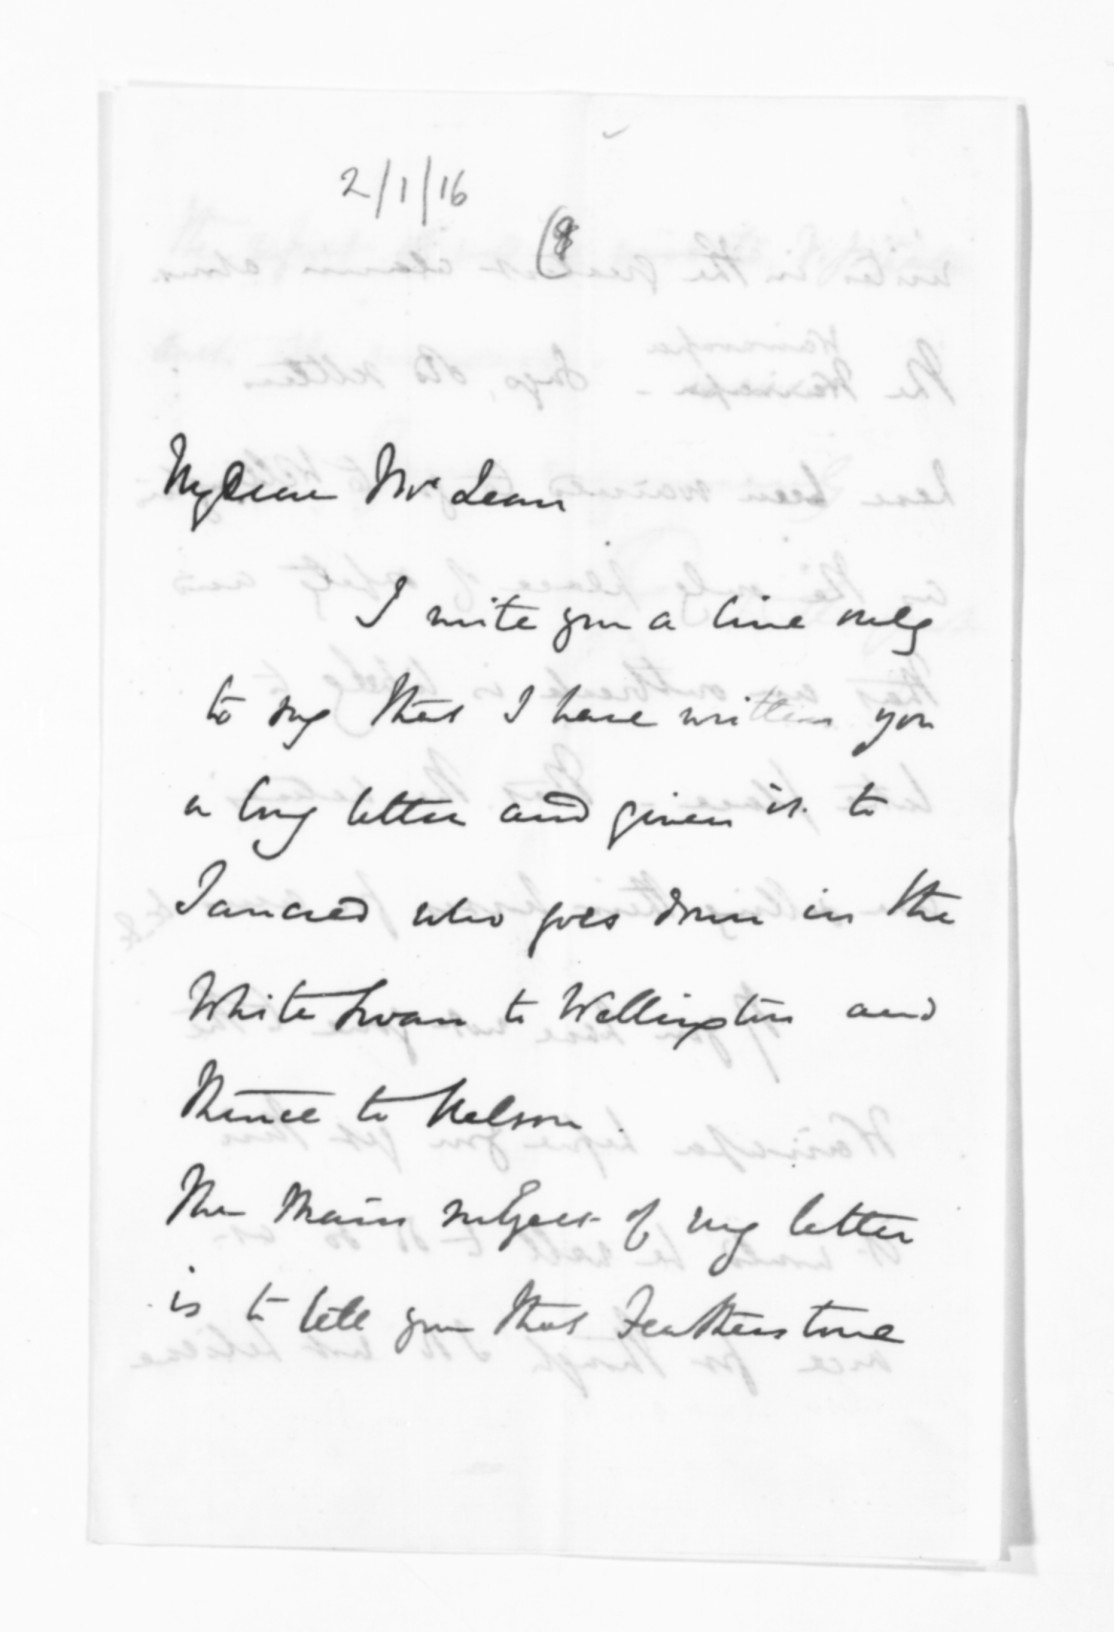 2/1/16
(8
My Dear McLean
I write you a line only
to say that I have written you
a long letter and given it to
Tancred who goes down in the
White Swan to Wellington and
thence to Nelson.
The main subject of my letter
is to tell you that Featherstone